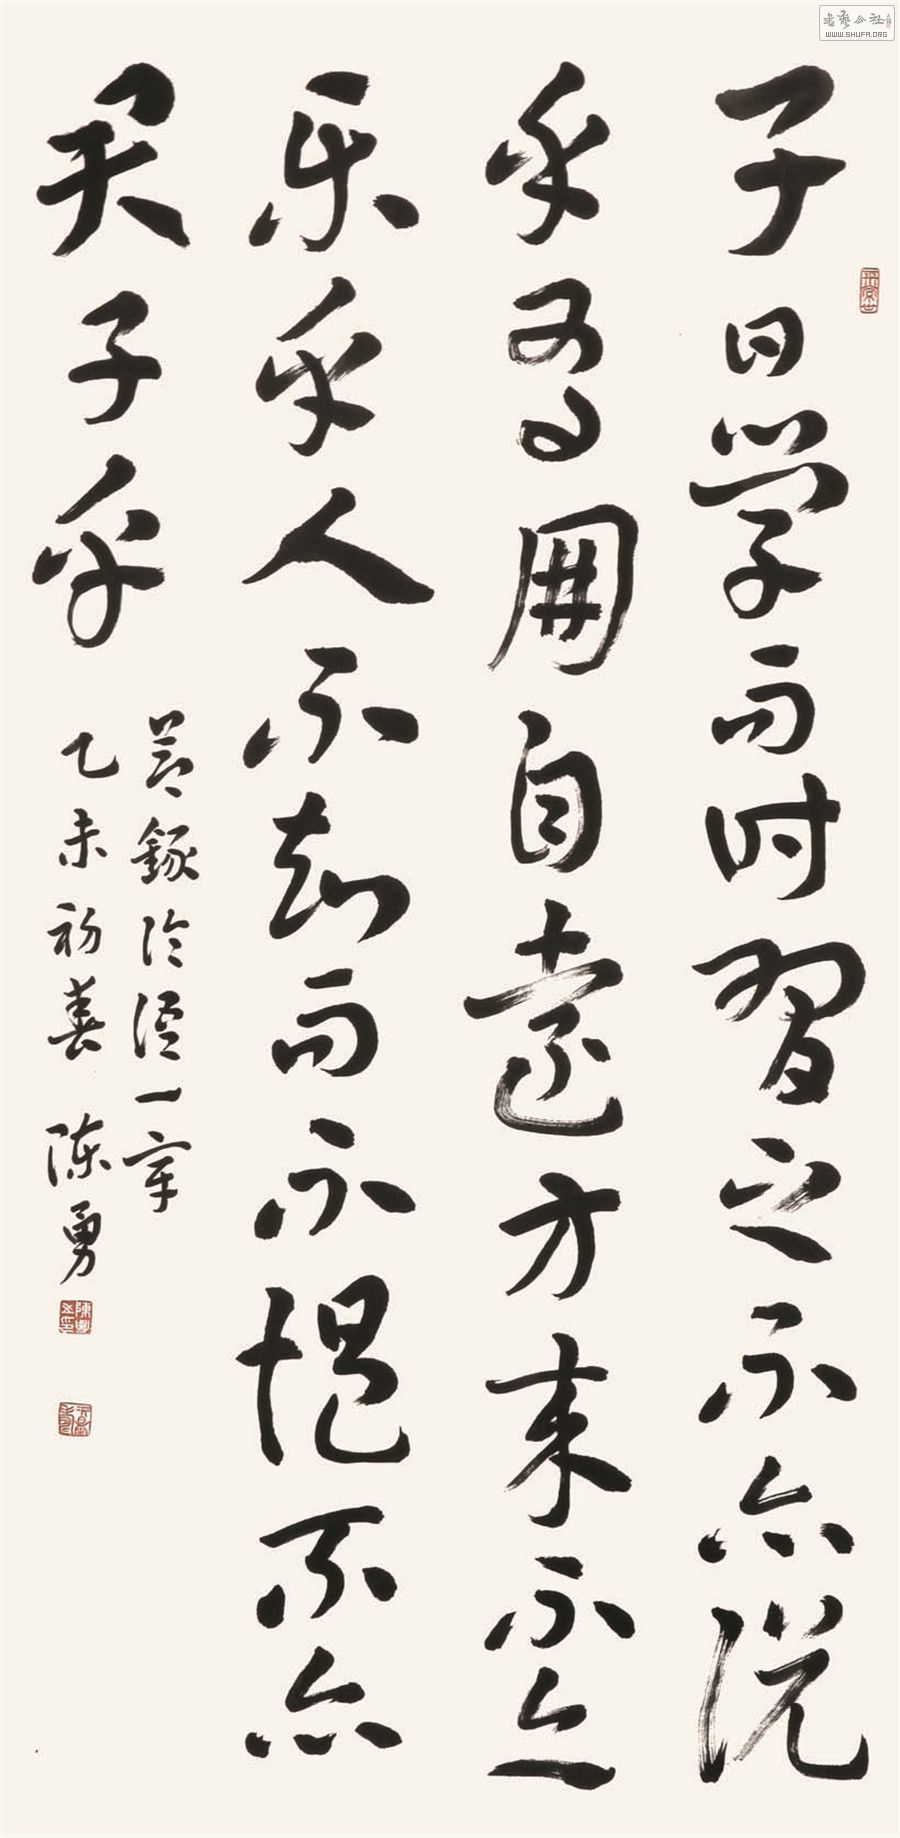 子曰学而时習之不亦说
乎有朋自遠方来不亦
乐乎人不知而不愠不亦
君子乎
节録论语一章
乙未初春 陈勇
书艺公社
WWW.SHUFA.ORG